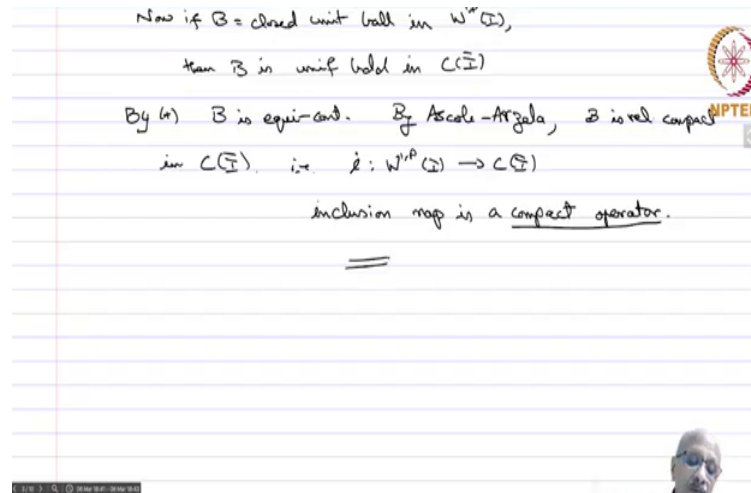 Now if B = closed unit ball in W^{1,p}(I),
then B is unif bdd in C(Ī)
By (*) B is equi-cont. By Ascoli-Arzela, B is rel compact
NPTEL
in C(Ī). i.e. i : W^{1,p}(I) → C(Ī)
inclusion map is a compact operator.